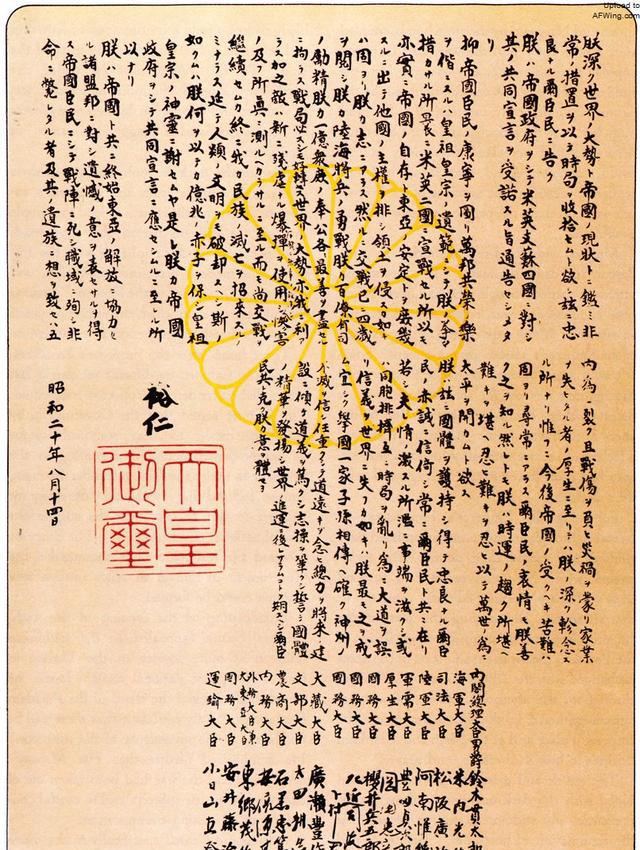 Upload to
AFWing.com
朕深ク世界ノ大勢ト帝國ノ現狀トニ鑑ミ非
常ノ措置ヲ以テ時局ヲ收拾セムト欲シ茲ニ忠
良ナル爾臣民ニ告ク
朕ハ帝國政府ヲシテ米英支蘇四國ニ對シ
其ノ共同宣言ヲ受諾スル旨通告セシメタ
リ
抑帝國臣民ノ康寧ヲ圖リ萬邦共榮ノ樂
ヲ偕ニスルハ皇祖皇宗ノ遺範ニシテ朕ノ拳々
措カサル所曩ニ米英二國ニ宣戰セル所以モ
亦實ニ帝國ノ自存ト東亞ノ安定トヲ庶幾
スルニ出テ他國ノ主權ヲ排シ領土ヲ侵スカ如
キハ固ヨリ朕カ志ニアラス然ルニ交戰已ニ四歲
ヲ閱シ朕カ陸海將兵ノ勇戰朕カ百僚有司
ノ勵精朕カ一億衆庶ノ奉公各最善ヲ盡セ
ルニ拘ラス戰局必スシモ好轉セス世界ノ大勢亦我ニ利ア
ラス加之敵ハ新ニ殘虐ナル爆彈ヲ使用シテ慘害
ノ及フ所眞ニ測ルヘカラサルニ至ル而モ尚交戰ヲ
繼續セムカ終ニ我カ民族ノ滅亡ヲ招來スル
ノミナラス延テ人類ノ文明ヲモ破却スヘシ斯ノ
如クムハ朕何ヲ以テカ億兆ノ赤子ヲ保シ皇祖
皇宗ノ神靈ニ謝セムヤ是レ朕カ帝國
政府ヲシテ共同宣言ニ應セシムルニ至レル所
以ナリ
朕ハ帝國ト共ニ終始東亞ノ解放ニ協力セ
ル諸盟邦ニ對シ遺憾ノ意ヲ表セサルヲ得
ス帝國臣民ニシテ戰陣ニ死シ職域ニ殉シ非
命ニ斃レタル者及其ノ遺族ニ想ヲ致セハ五
内爲ニ裂ク且戰傷ヲ負ヒ災禍ヲ蒙リ家業
ヲ失ヒタル者ノ厚生ニ至リテハ朕ノ深ク軫念ス
ル所ナリ惟フニ今後帝國ノ受クヘキ苦難ハ
固ヨリ尋常ニアラス爾臣民ノ衷情モ朕善
ク之ヲ知ル然レトモ朕ハ時運ノ趨ク所堪ヘ
難キヲ堪ヘ忍ヒ難キヲ忍ヒ以テ萬世ノ爲ニ
太平ヲ開カムト欲ス
朕ハ茲ニ國體ヲ護持シ得テ忠良ナル爾臣
民ノ赤誠ニ信倚シ常ニ爾臣民ト共ニ在リ
若シ夫レ情ノ激スル所濫ニ事端ヲ滋クシ或
ハ同胞排擠互ニ時局ヲ亂リ爲ニ大道ヲ誤
リ信義ヲ世界ニ失フカ如キハ朕最モ之ヲ戒
ム宜シク擧國一家子孫相傳ヘ確ク神州ノ
不滅ヲ信シ任重クシテ道遠キヲ念ヒ總力ヲ將來ノ建
設ニ傾ケ道義ヲ篤クシ志操ヲ鞏クシ誓テ國體
ノ精華ヲ發揚シ世界ノ進運ニ後レサラムコトヲ期スヘシ爾臣
民其レ克ク朕カ意ヲ體セヨ
裕仁
天皇御璽
昭和二十年八月十四日
内閣總理大臣男爵鈴木貫太郎
海軍大臣 米内光政
司法大臣 松阪廣政
陸軍大臣 阿南惟幾
軍需大臣 豊田貞次郎
厚生大臣 岡田忠彦
國務大臣 櫻井兵五郎
國務大臣 左近司政三
國務大臣 下村宏
大藏大臣 廣瀨豊作
文部大臣 太田耕造
農商大臣 石黑忠篤
内務大臣 安倍源基
外務大臣兼大東亞大臣 東郷茂徳
國務大臣 安井藤治
運輸大臣 小日山直登